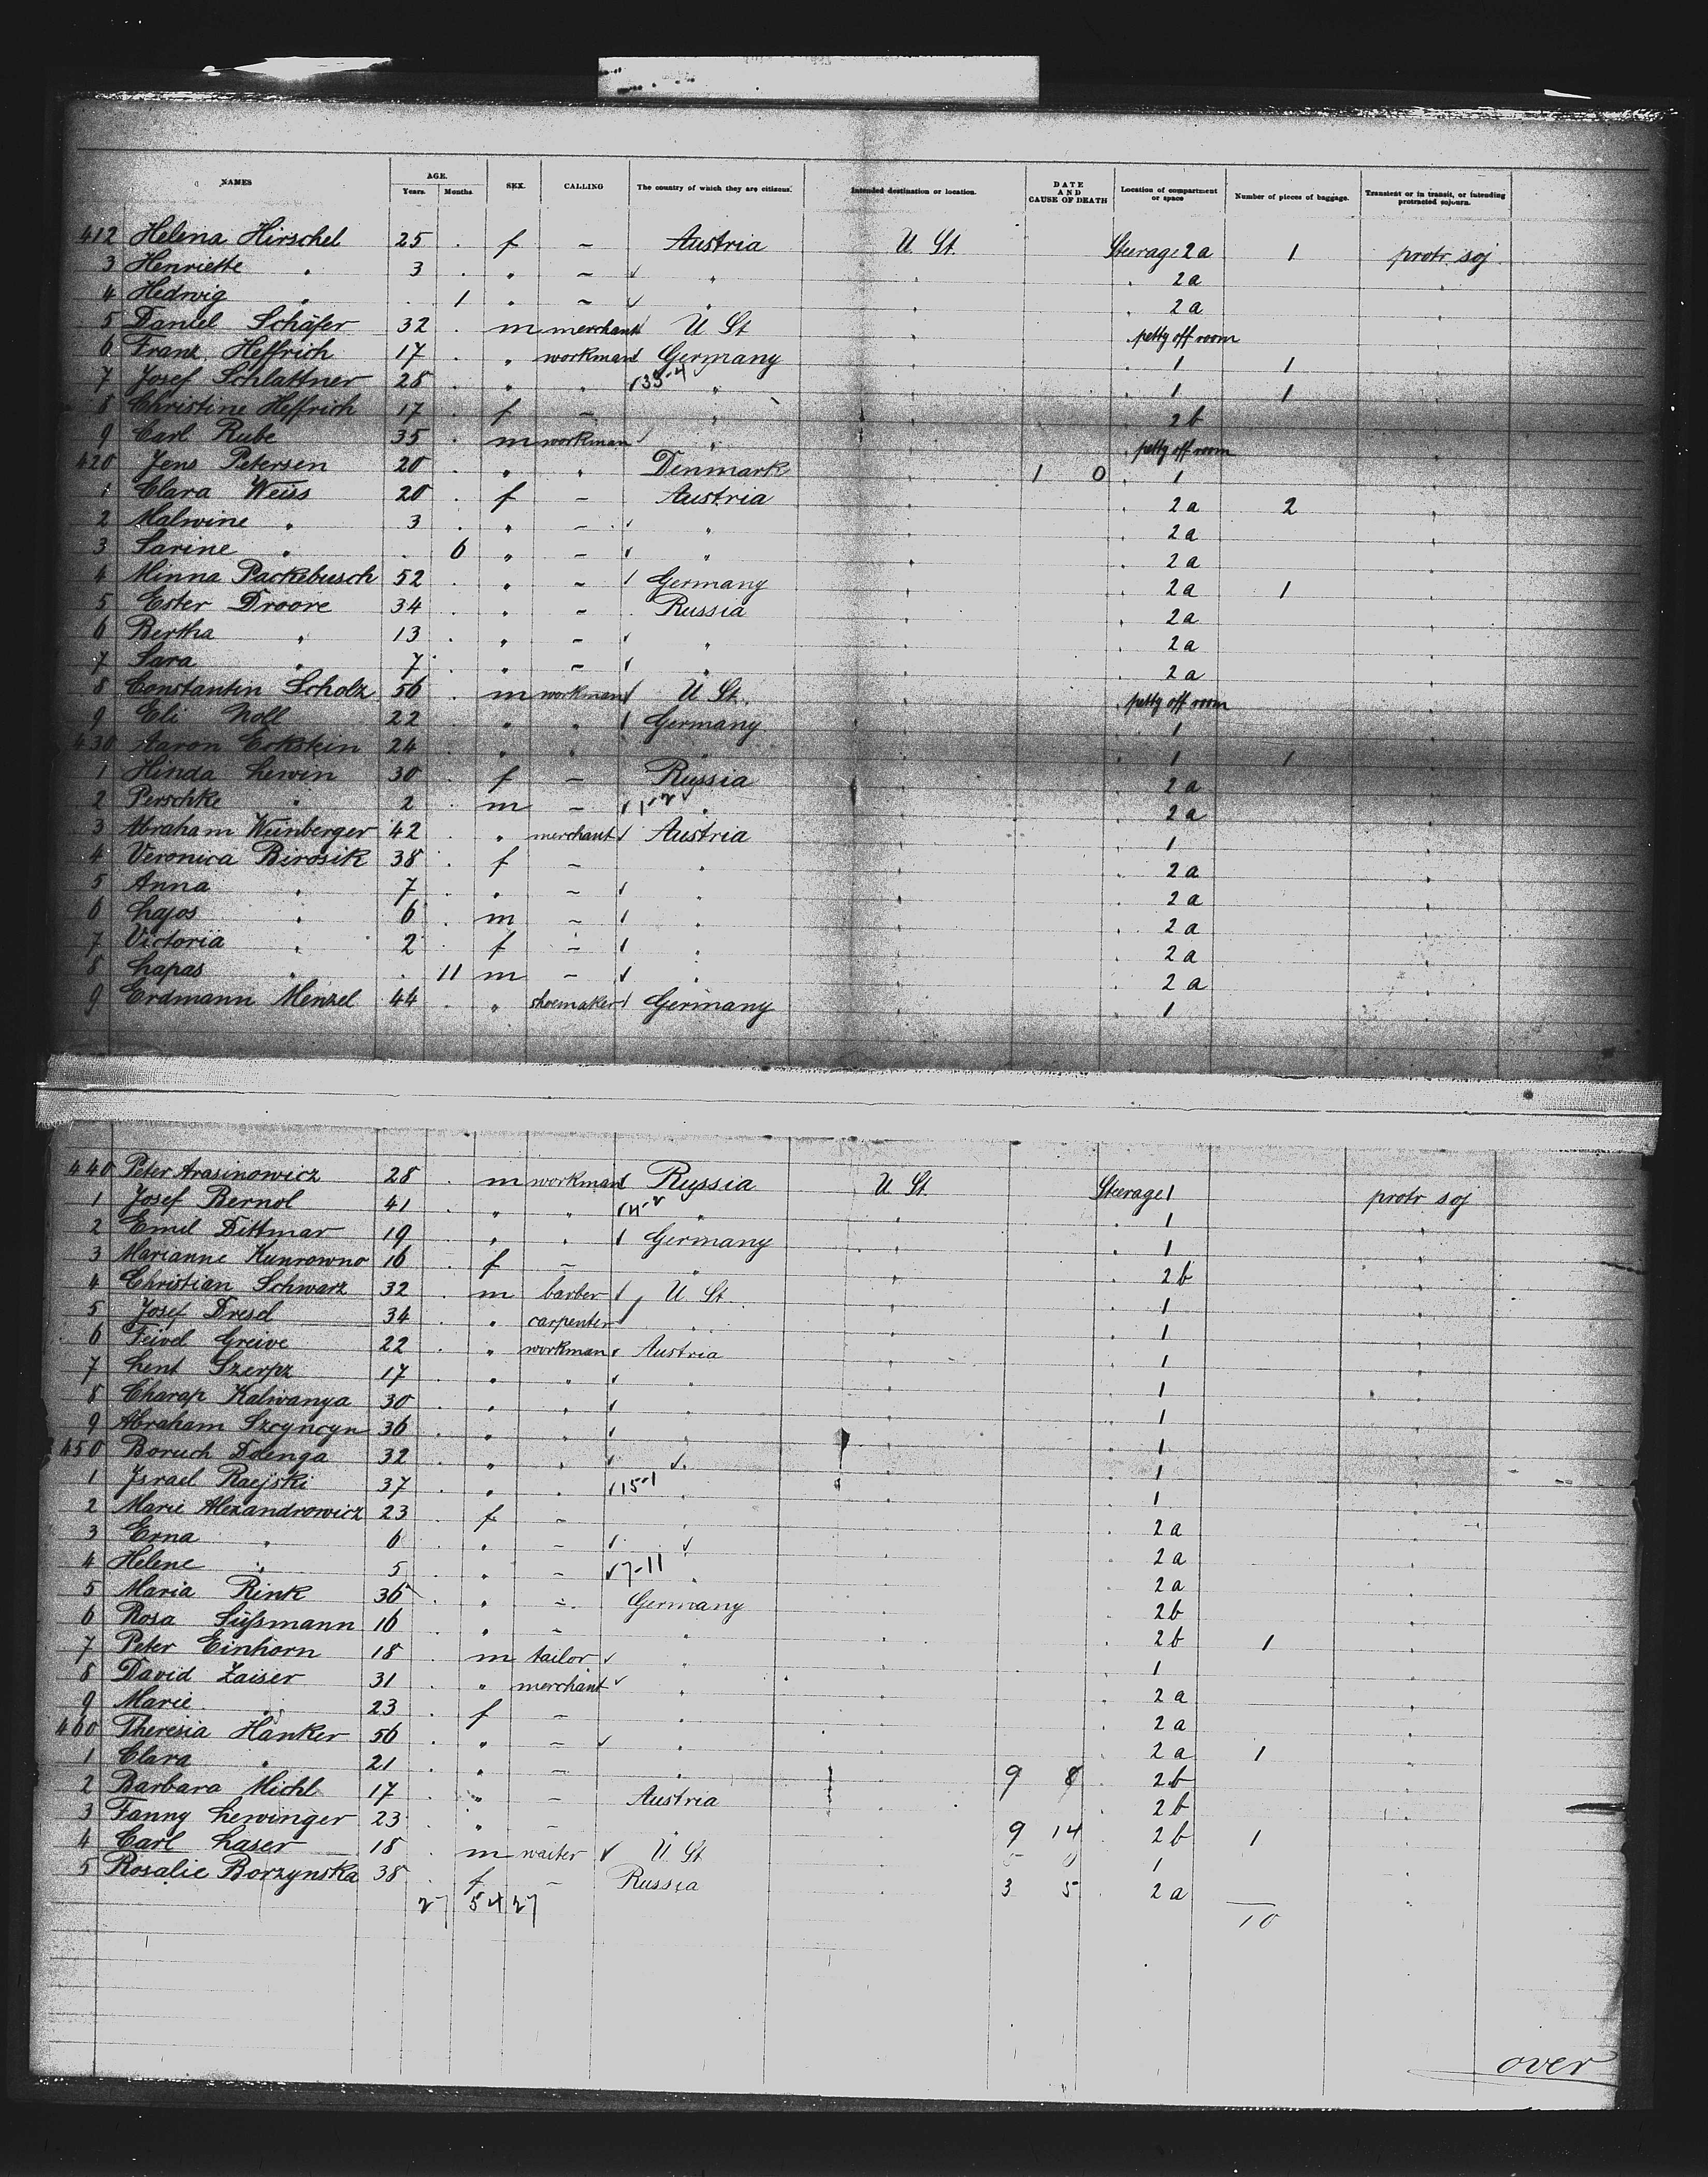 NAMES AGE. Years. Months. SEX. CALLING The country of which they are citizens. Intended destination or location. DATE AND CAUSE OF DEATH Location of compartment or space Number of pieces of baggage. Transient or in transit, or intending protracted sojourn.
412 Helena Hirschel 25 . f – Austria U St. Steerage 2a 1 protr. soj.
3 Henriette " 3 . " – " " " 2a "
4 Hedwig " . 1 " – " " " 2a "
5 Daniel Schäfer 32 . m merchant U St " " petty off room "
6 Franz Heffrich 17 . " workman Germany " " 1 1 "
7 Josef Schlattner 28 . " " 35-4 " " " 1 1 "
8 Christine Heffrich 17 . f – " " " 2b "
9 Carl Rube 35 . m workman " " " petty off room "
420 Jens Petersen 20 . " " Denmark " 1 0 " 1 "
1 Clara Weiss 20 . f – Austria " " 2a 2 "
2 Malwine " 3 . " – " " " 2a "
3 Sarine " . 6 " – " " " 2a "
4 Minna Packebusch 52 . " – Germany " " 2a 1 "
5 Ester Droore 34 . " – Russia " " 2a "
6 Bertha " 13 . " – " " " 2a "
7 Sara " 7 . " – " " " 2a "
8 Constantin Scholz 56 . m workman U St. " " petty off room "
9 Eli Noll 22 . " " Germany " " 1 "
430 Aaron Eckstein 24 . " " " " " 1 1 "
1 Hinda Lewin 30 . f – Russia " " 2a "
2 Perschke " 2 . m – 1-2 " " " 2a "
3 Abraham Weinberger 42 . " merchant Austria " " 1 "
4 Veronica Birosik 38 . f – " " " 2a "
5 Anna " 7 . " – " " " 2a "
6 Lajos " 6 . m – " " " 2a "
7 Victoria " 2 . f – " " " 2a "
8 Lapas " . 11 m – " " " 2a "
9 Erdmann Menzel 44 . " shoemaker Germany " " 1 "
440 Peter Arasinowicz 28 . m workman Russia U St. Steerage 1 protr soj
1 Josef Bernol 41 . " " " " " 1 "
2 Emil Dittmar 19 . " " Germany " " 1 "
3 Marianne Kunrowno 16 . f – " " " 2b "
4 Christian Schwarz 32 . m barber U St. " " 1 "
5 Josef Dresd 34 . " carpenter " " " 1 "
6 Feivel Greive 22 . " workman Austria " " 1 "
7 Lent Szerpz 17 . " " " " " 1 "
8 Charap Kaliwanya 30 . " " " " " 1 "
9 Abraham Szcyncyn 36 . " " " " " 1 "
450 Boruch Dolenga 32 . " " " " " 1 "
1 Israel Raejski 37 . " " 15-1 " " " 1 "
2 Marie Alexandrowicz 23 . f – " " " 2a "
3 Erna " 6 . " – " " " 2a "
4 Helene " 5 . " – 7-11 " " " 2a "
5 Maria Rink 36 . " – Germany " " 2b "
6 Rosa Süßmann 16 . " – " " " 2b 1 "
7 Peter Einhorn 18 . m tailor " " " 1 "
8 David Zaiser 31 . " merchant " " " 2a "
9 Marie " 23 . f – " " " 2a "
460 Theresia Hanker 56 . " – " " " 2a 1 "
1 Clara " 21 . " – " " 9 8 " 2b "
2 Barbara Michl 17 . " – Austria " " 2b "
3 Fanny Lewinger 23 . " – " " 9 14 " 2b 1 "
4 Carl Laser 18 . m waiter U St " " 1 "
5 Rosalie Borzynska 38 . f – Russia " 3 5 " 2a "
27 54 27 10
over